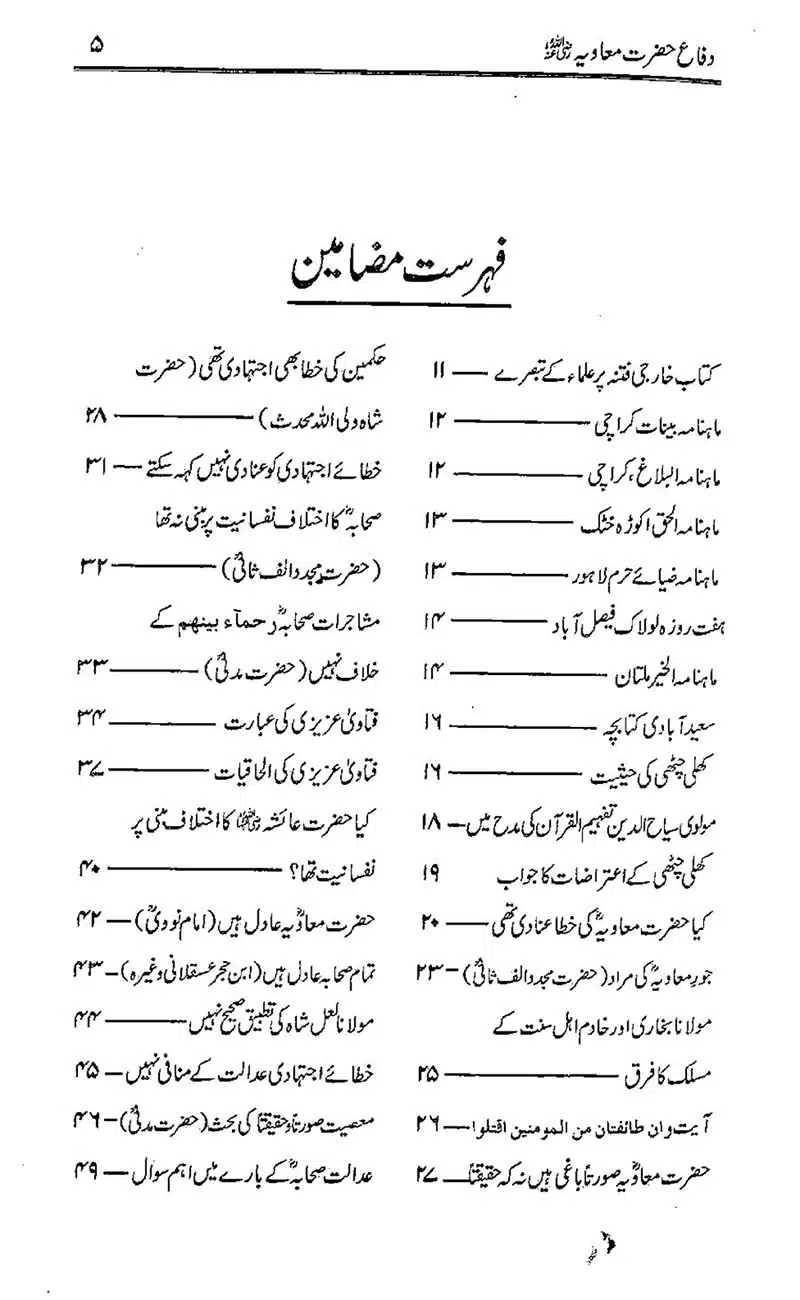 دفاع حضرت معاویہ رضی اللہ عنہ ۵
فہرست مضامین
کتاب خارجی فتنہ پر علماء کے تبصرے — ۱۱
ماہنامہ بینات کراچی — ۱۲
ماہنامہ البلاغ، کراچی — ۱۲
ماہنامہ الحق اکوڑہ خٹک — ۱۳
ماہنامہ ضیائے حرم لاہور — ۱۳
ہفت روزہ لولاک فیصل آباد — ۱۴
ماہنامہ الخیر ملتان — ۱۴
سعید آبادی کتابچہ — ۱۶
کھلی چٹھی کی حیثیت — ۱۶
مولوی سیاح الدین تفہیم القرآن کی مدح میں — ۱۸
کھلی چٹھی کے اعتراضات کا جواب ۱۹
کیا حضرت معاویہؓ کی خطا عنادی تھی — ۲۰
جور معاویہؓ کی مراد (حضرت مجدد الف ثانیؒ) — ۲۳
مولانا بخاری اور خادم اہل سنت کے
مسلک کا فرق — ۲۵
آیت وان طائفتان من المومنین اقتلوا — ۲۶
حضرت معاویہؓ صورتاً باغی ہیں نہ کہ حقیقتاً — ۲۷
حکمین کی خطا بھی اجتہادی تھی (حضرت
شاہ ولی اللہ محدث) — ۲۸
خطائے اجتہادی کو عنادی نہیں کہہ سکتے — ۳۱
صحابہؓ کا اختلاف نفسانیت پر مبنی نہ تھا
(حضرت مجدد الف ثانیؒ) — ۳۲
مشاجرات صحابہؓ رحماء بینھم کے
خلاف نہیں (حضرت مدنیؒ) — ۳۳
فتاویٰ عزیزی کی عبارت — ۳۴
فتاویٰ عزیزی کی الحاقیات — ۳۷
کیا حضرت عائشہ رضی اللہ عنہا کا اختلاف مبنی پر
نفسانیت تھا؟ — ۴۰
حضرت معاویہؓ عادل ہیں (امام نوویؒ) — ۴۲
تمام صحابہ عادل ہیں (ابن حجر عسقلانی وغیرہ) — ۴۳
مولانا لعل شاہ کی تطبیق صحیح نہیں — ۴۴
خطائے اجتہادی عدالت کے منافی نہیں — ۴۵
معصیت صورتاً و حقیقتاً کی بحث (حضرت مدنیؒ) — ۴۶
عدالت صحابہؓ کے بارے میں اہم سوال — ۴۹